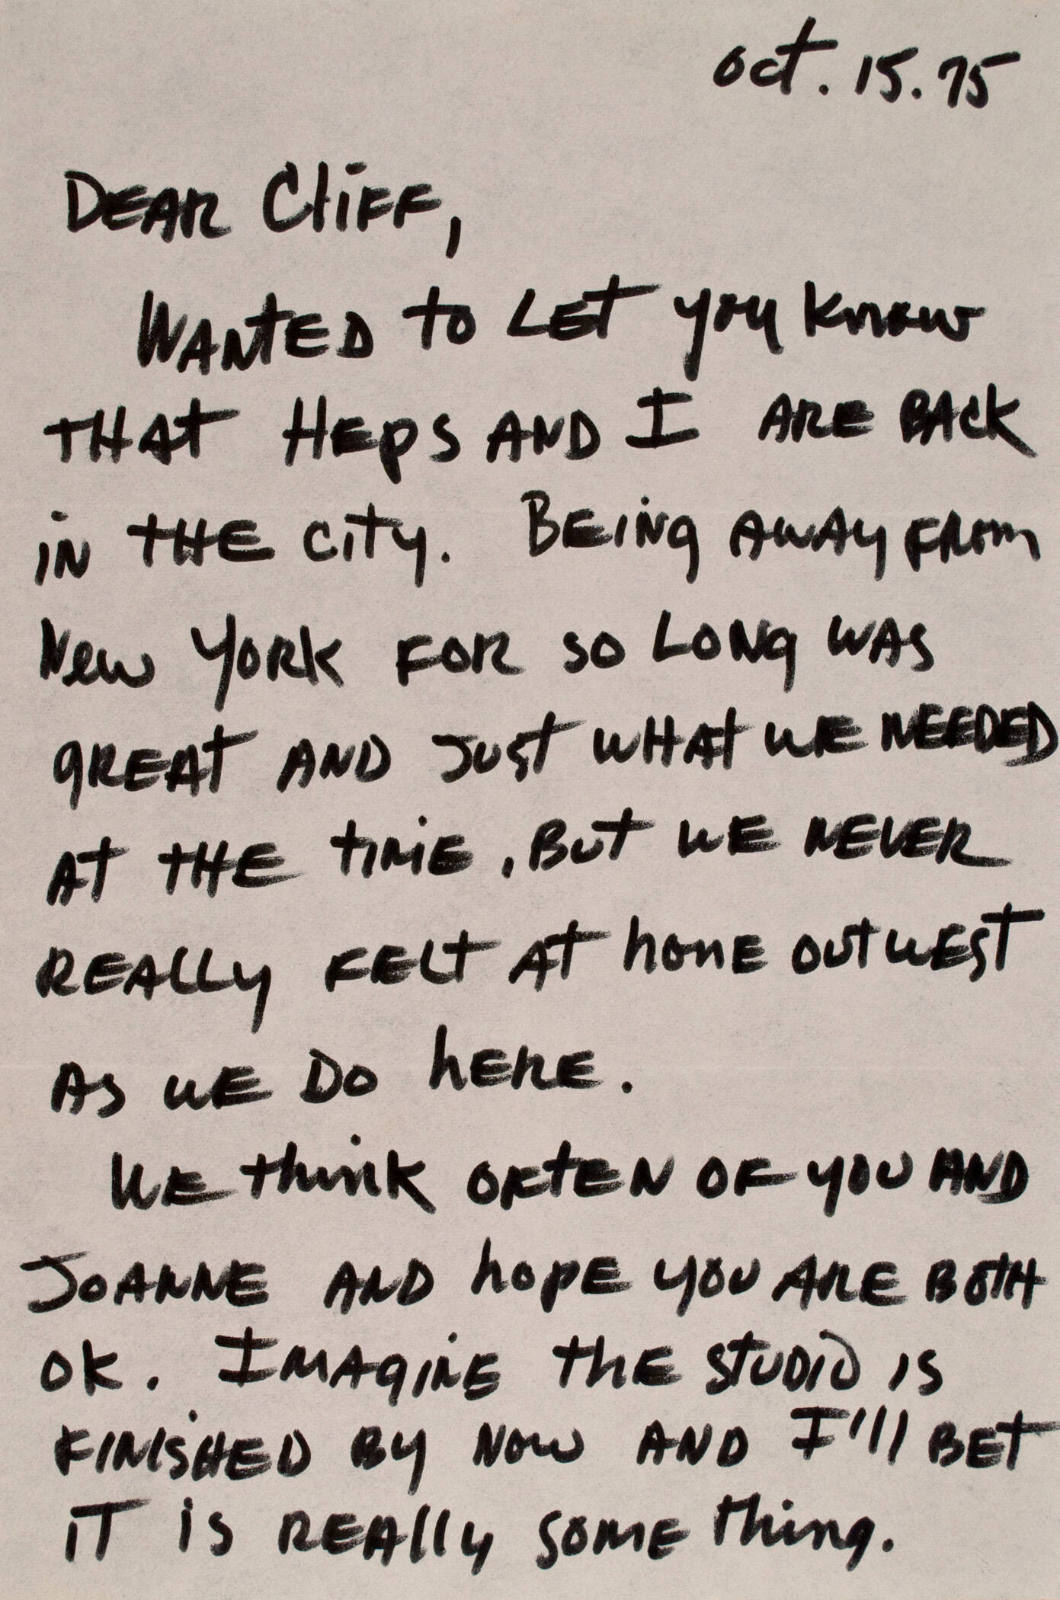 oct. 15. 75
DEAR CliFF,
WANtED to LET you know
THAT HEpS AND I ARE BAck
iN tHE city. BEiNg AWAy FROm
New YORK FOR so LONg WAS
gREAT AND JUST WHAT WE NEEDED
AT tHE tiME, BUT WE NEVER
REALLy FELT AT hoME OUT WEST
AS WE DO hERE.
WE think OFtEN OF yOU AND
JOANNE AND hopE yOU ARE BOTH
OK. IMAgiNE thE STUDiO iS
FINiSHED By NOW AND I'll BET
iT iS REAlly SOME thing.